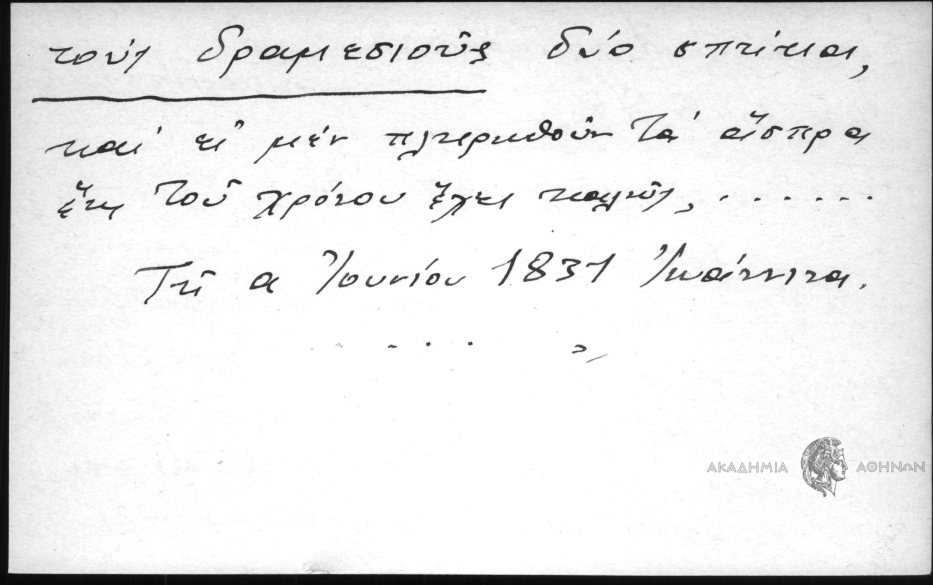 τούς δραμεσιούς δύο σπίτια,
καί εἰ μέν πλερωθοῦν τά ἄσπρα
ἕως τοῦ χρόνου ἔχει καλῶς, . . . . . .
Τῇ α Ἰουνίου 1831 Ἰωάννινα.
. . . . »
ΑΚΑΔΗΜΙΑ ΑΘΗΝΩΝ